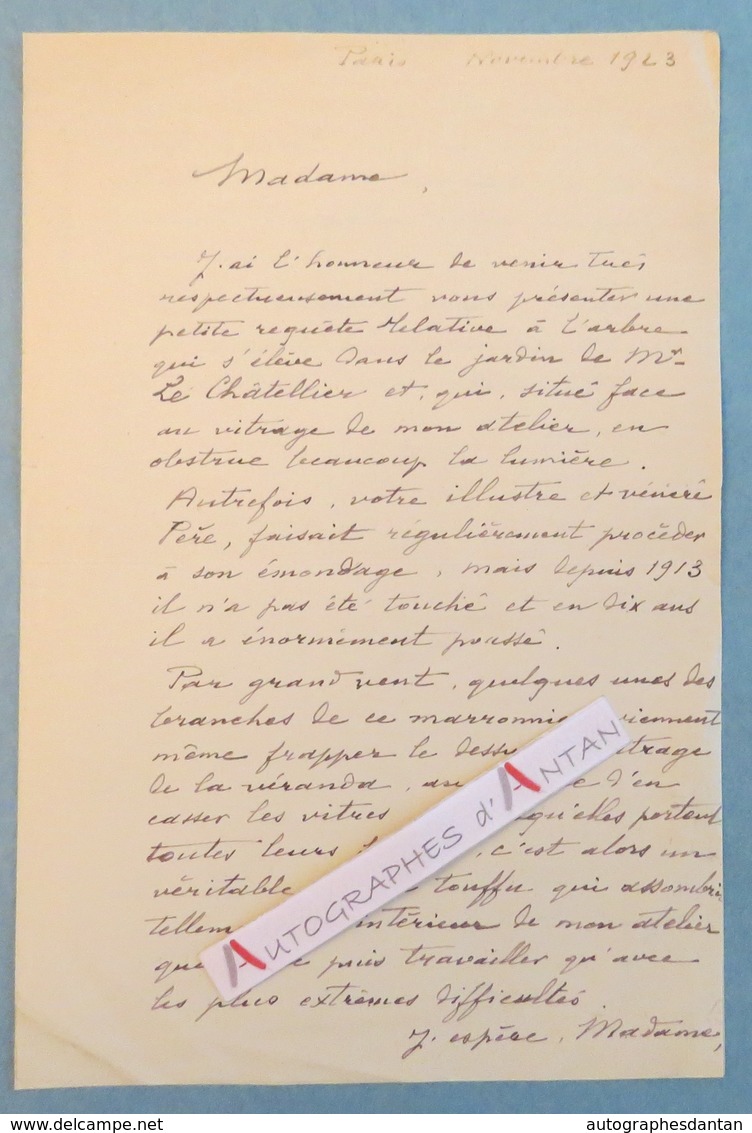 Paris Novembre 1923
Madame,
J'ai l'honneur de venir très
respectueusement vous présenter une
petite requête relative à l'arbre
qui s'élève dans le jardin de Mr
Le Châtellier et, qui, situé face
au vitrage de mon atelier, en
obstrue beaucoup la lumière.
Autrefois, votre illustre et vénéré
Père, faisait régulièrement procéder
à son émondage, mais depuis 1913
il n'a pas été touché et en dix ans
il a énormément poussé.
Par grand vent, quelques unes des
branches de ce marronnie viennent
même frapper le dessu trage
de la véranda, au e d'en
casser les vitres qu'elles portent
toutes leurs , c'est alors un
véritable touffu qui assombri
tellem intérieur de mon atelier
que e puis travailler qu'avec
les plus extrêmes difficultés
J'espère, Madame,
AUTOGRAPHES d'ANTAN
© delcampe.net
autographesdantan